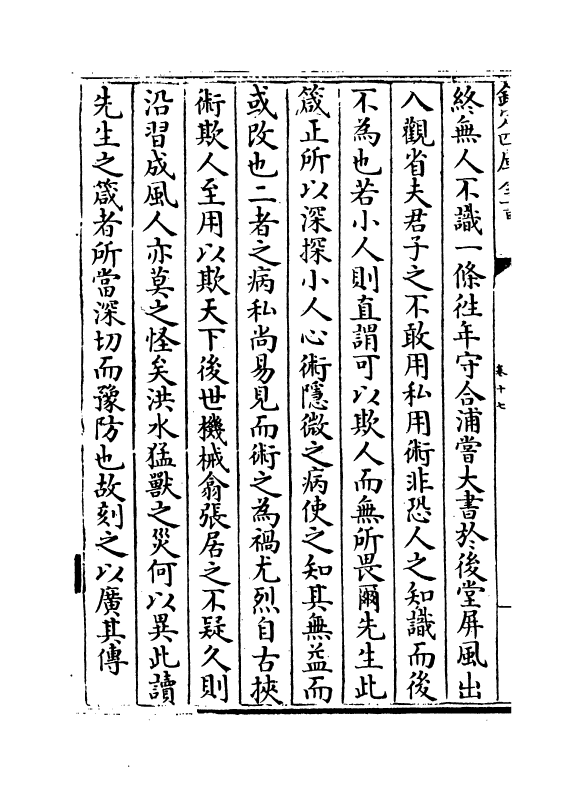 終無人不識一條徃年守合浦嘗大書於後堂屏風出
入觀省夫君子之不敢用私用術非恐人之知識而後
不為也若小人則直謂可以欺人而無所畏爾先生此
箴正所以深探小人心術隱微之病使之知其無益而
或改也二者之病私尚易見而術之為禍尤烈自古挾
術欺人至用以欺天下後世機械翕張居之不疑久則
沿習成風人亦莫之怪矣洪水猛獸之災何以異此讀
先生之箴者所當深切而豫防也故刻之以廣其傳
卷十七